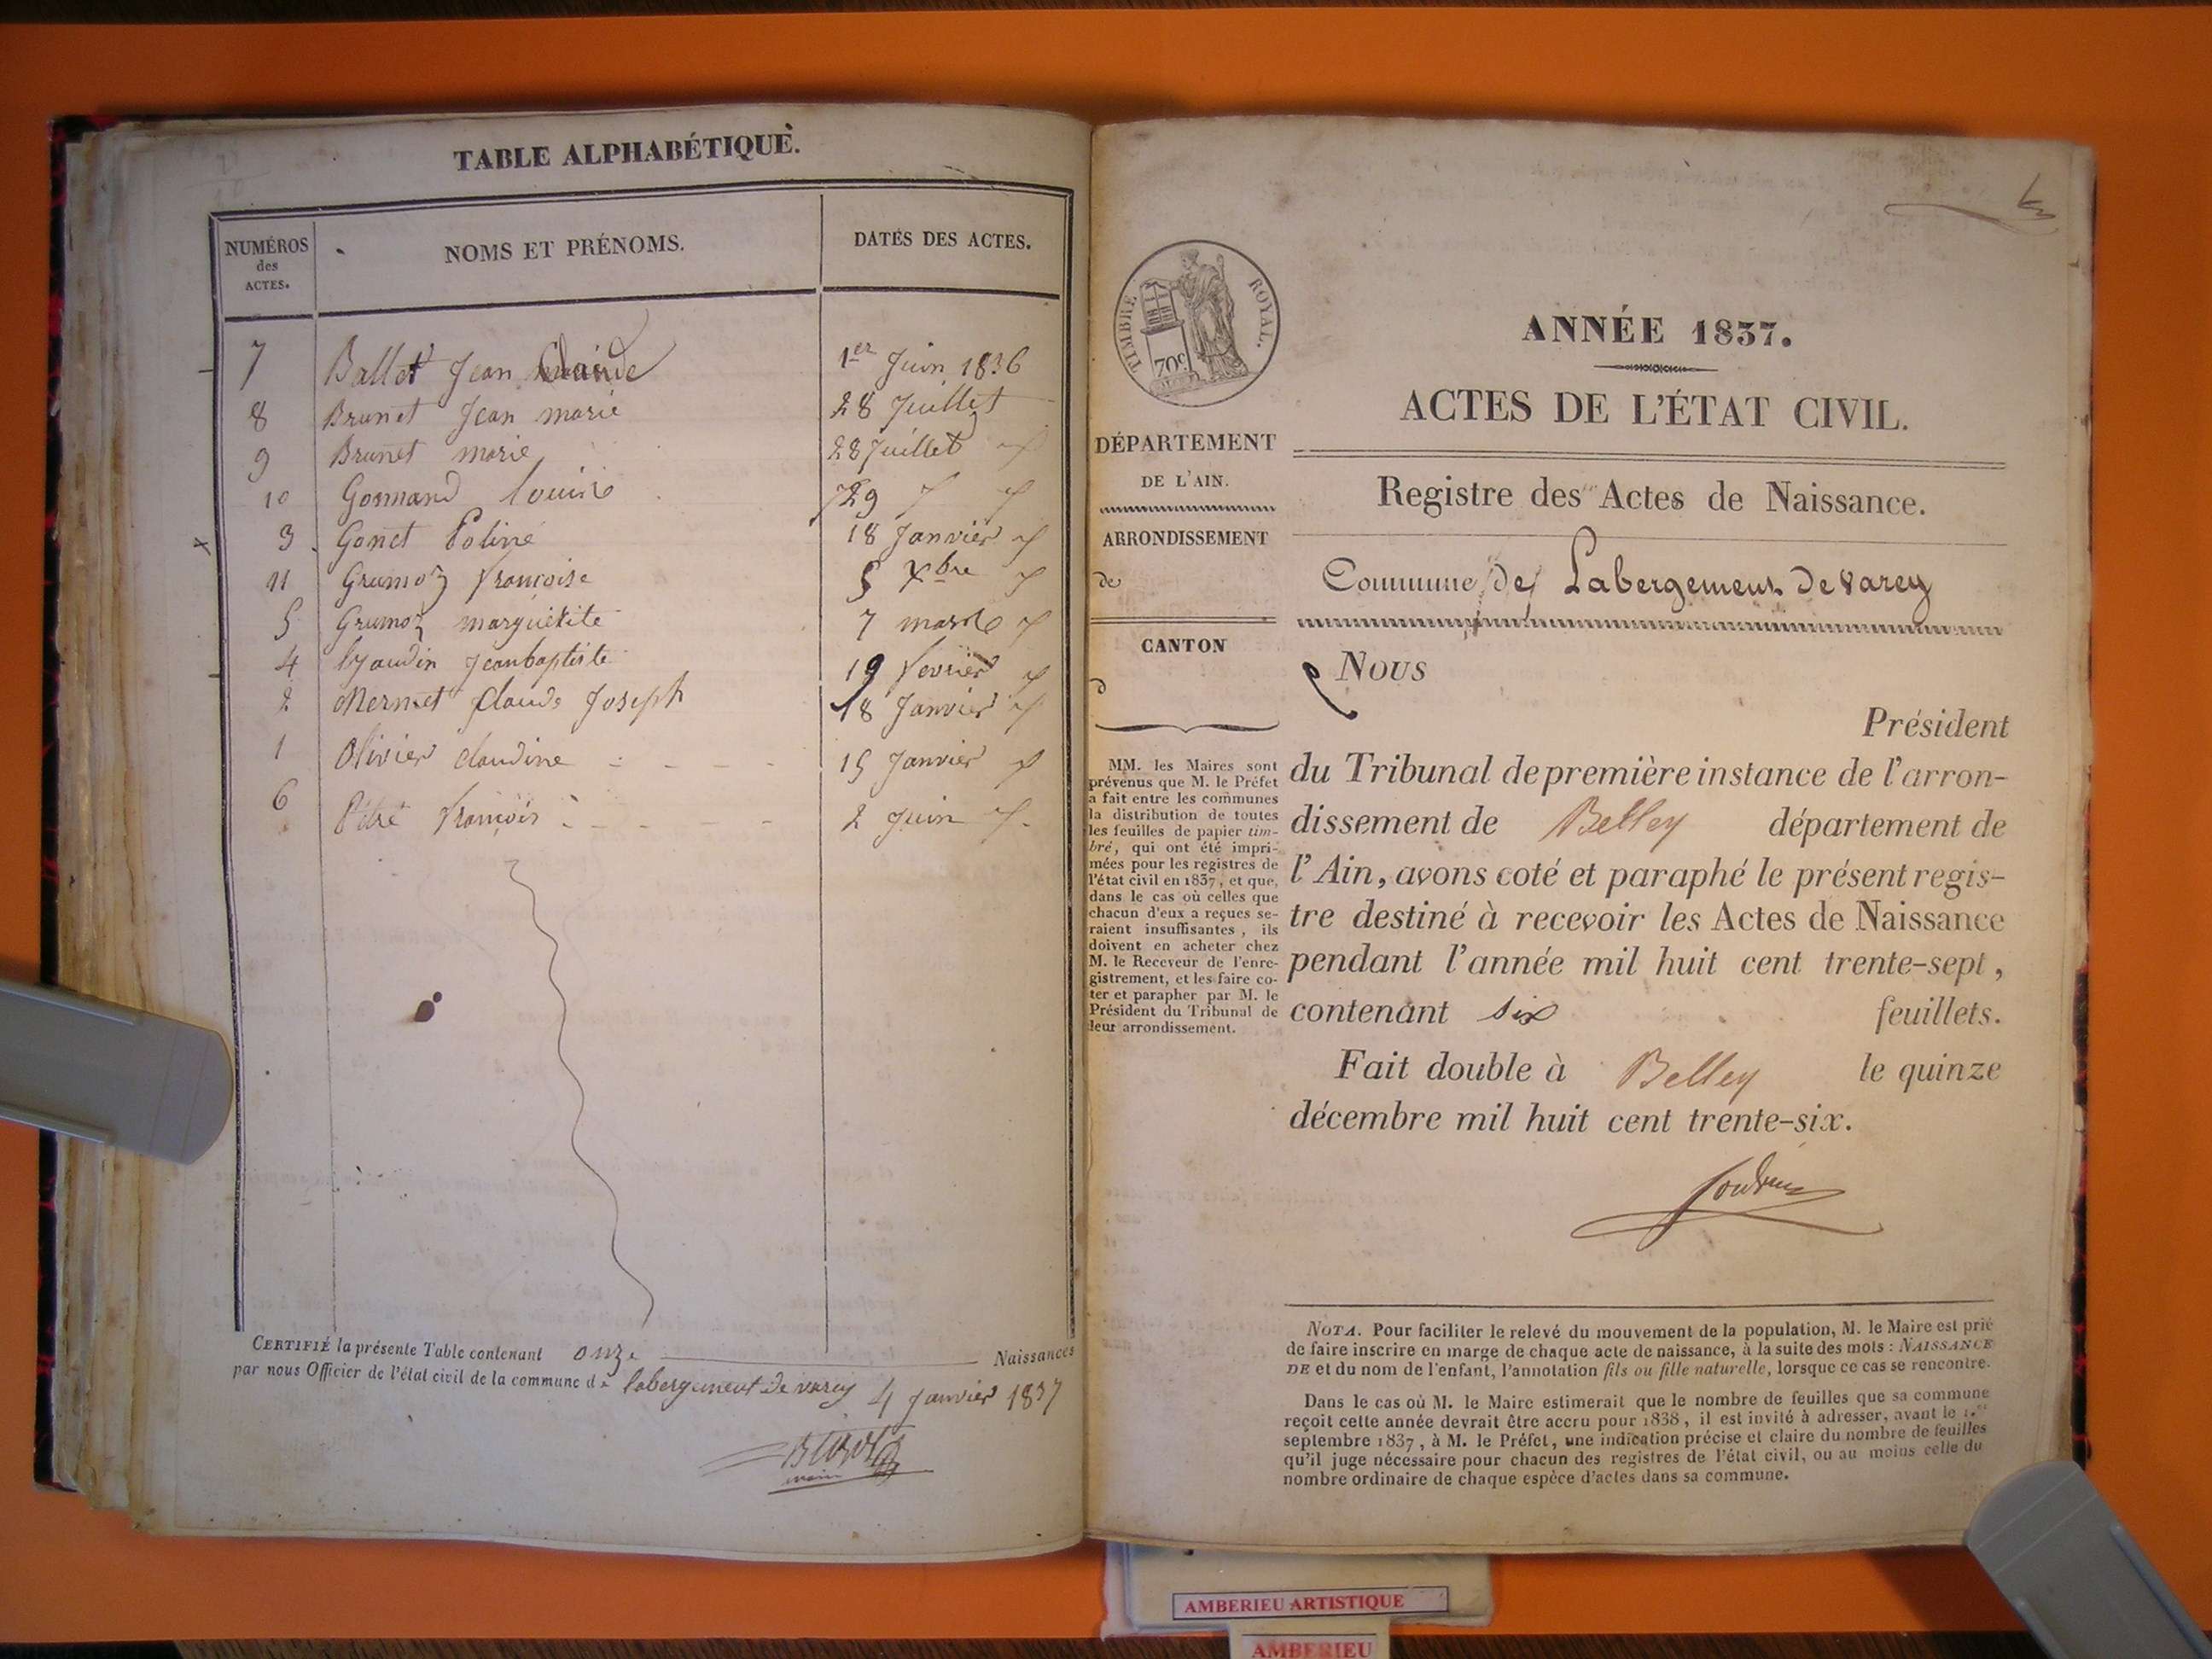 TABLE ALPHABÉTIQUE.
NUMÉROS des ACTES.
NOMS ET PRÉNOMS.
DATES DES ACTES.
7 Ballet Jean Claude 1er Juin 1836
8 Brunet Jean marie 28 Juillet
9 Brunet marie 28 Juillet
10 Gormand Louise 29
3 Gonet Poline 18 Janvier
11 Grumoz françoise 5 Xbre
5 Grumoz marguerite 7 mars
4 jeanbaptiste 19 fevrier
2 Mermet Claude Joseph 18 Janvier
1 Olivier claudine 15 Janvier
6 françois 2 Juin
CERTIFIÉ la présente Table contenant onze Naissances
par nous Officier de l'état civil de la commune de labergement de varey 4 Janvier 1837
maire
TIMBRE ROYAL.
70c
ANNÉE 1837.
ACTES DE L'ÉTAT CIVIL.
DÉPARTEMENT
DE L'AIN.
ARRONDISSEMENT
de
CANTON
d
MM. les Maires sont
prévenus que M. le Préfet
a fait entre les communes
la distribution de toutes
les feuilles de papier tim-
bré, qui ont été impri-
mées pour les registres de
l'état civil en 1837, et que,
dans le cas où celles que
chacun d'eux a reçues se-
raient insuffisantes, ils
doivent en acheter chez
M. le Receveur de l'enre-
gistrement, et les faire co-
ter et parapher par M. le
Président du Tribunal de
leur arrondissement.
Registre des Actes de Naissance.
Commune de Labergement de Varey
Nous
Président
du Tribunal de première instance de l'arron-
dissement de Belley département de
l'Ain, avons coté et paraphé le présent regis-
tre destiné à recevoir les Actes de Naissance
pendant l'année mil huit cent trente-sept,
contenant six feuillets.
Fait double à Belley le quinze
décembre mil huit cent trente-six.
NOTA. Pour faciliter le relevé du mouvement de la population, M. le Maire est prié
de faire inscrire en marge de chaque acte de naissance, à la suite des mots : NAISSANCE
DE et du nom de l'enfant, l'annotation fils ou fille naturelle, lorsque ce cas se rencontre.
Dans le cas où M. le Maire estimerait que le nombre de feuilles que sa commune
reçoit cette année devrait être accru pour 1838, il est invité à adresser, avant le 1.er
septembre 1837, à M. le Préfet, une indication précise et claire du nombre de feuilles
qu'il juge nécessaire pour chacun des registres de l'état civil, ou au moins celle du
nombre ordinaire de chaque espèce d'actes dans sa commune.
AMBERIEU ARTISTIQUE
AMBERIEU